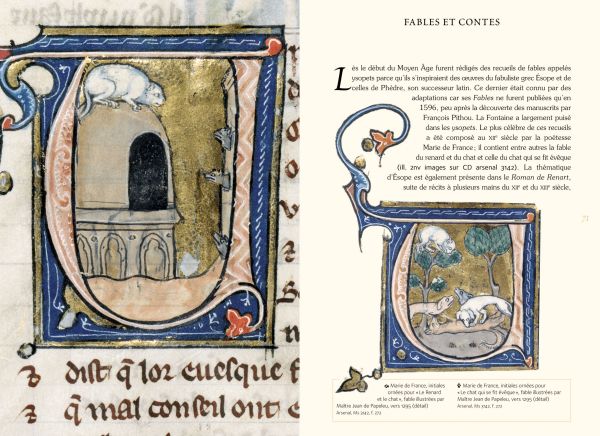 dist q̃ lor euesque f
q̃ mal conseil ont e
FABLES ET CONTES
Lès le début du Moyen Âge furent rédigés des recueils de fables appelés
ysopets parce qu'ils s'inspiraient des œuvres du fabuliste grec Ésope et de
celles de Phèdre, son successeur latin. Ce dernier était connu par des
adaptations car ses Fables ne furent publiées qu'en
1596, peu après la découverte des manuscrits par
François Pithou. La Fontaine a largement puisé
dans les ysopets. Le plus célèbre de ces recueils
a été composé au XIIe siècle par la poétesse
Marie de France ; il contient entre autres la fable
du renard et du chat et celle du chat qui se fit évêque
(ill. znv images sur CD arsenal 3142). La thématique
d'Ésope est également présente dans le Roman de Renart,
suite de récits à plusieurs mains du XIIe et du XIIIe siècle,
71
Marie de France, initiales
ornées pour « Le Renard
et le chat », fable illustrées par
Maître Jean de Papeleu, vers 1295 (détail)
Arsenal, Ms 3142, f. 272
Marie de France, initiales ornées pour
« Le chat qui se fit évêque », fable illustrées par
Maître Jean de Papeleu, vers 1295 (détail)
Arsenal, Ms 3142, f. 272